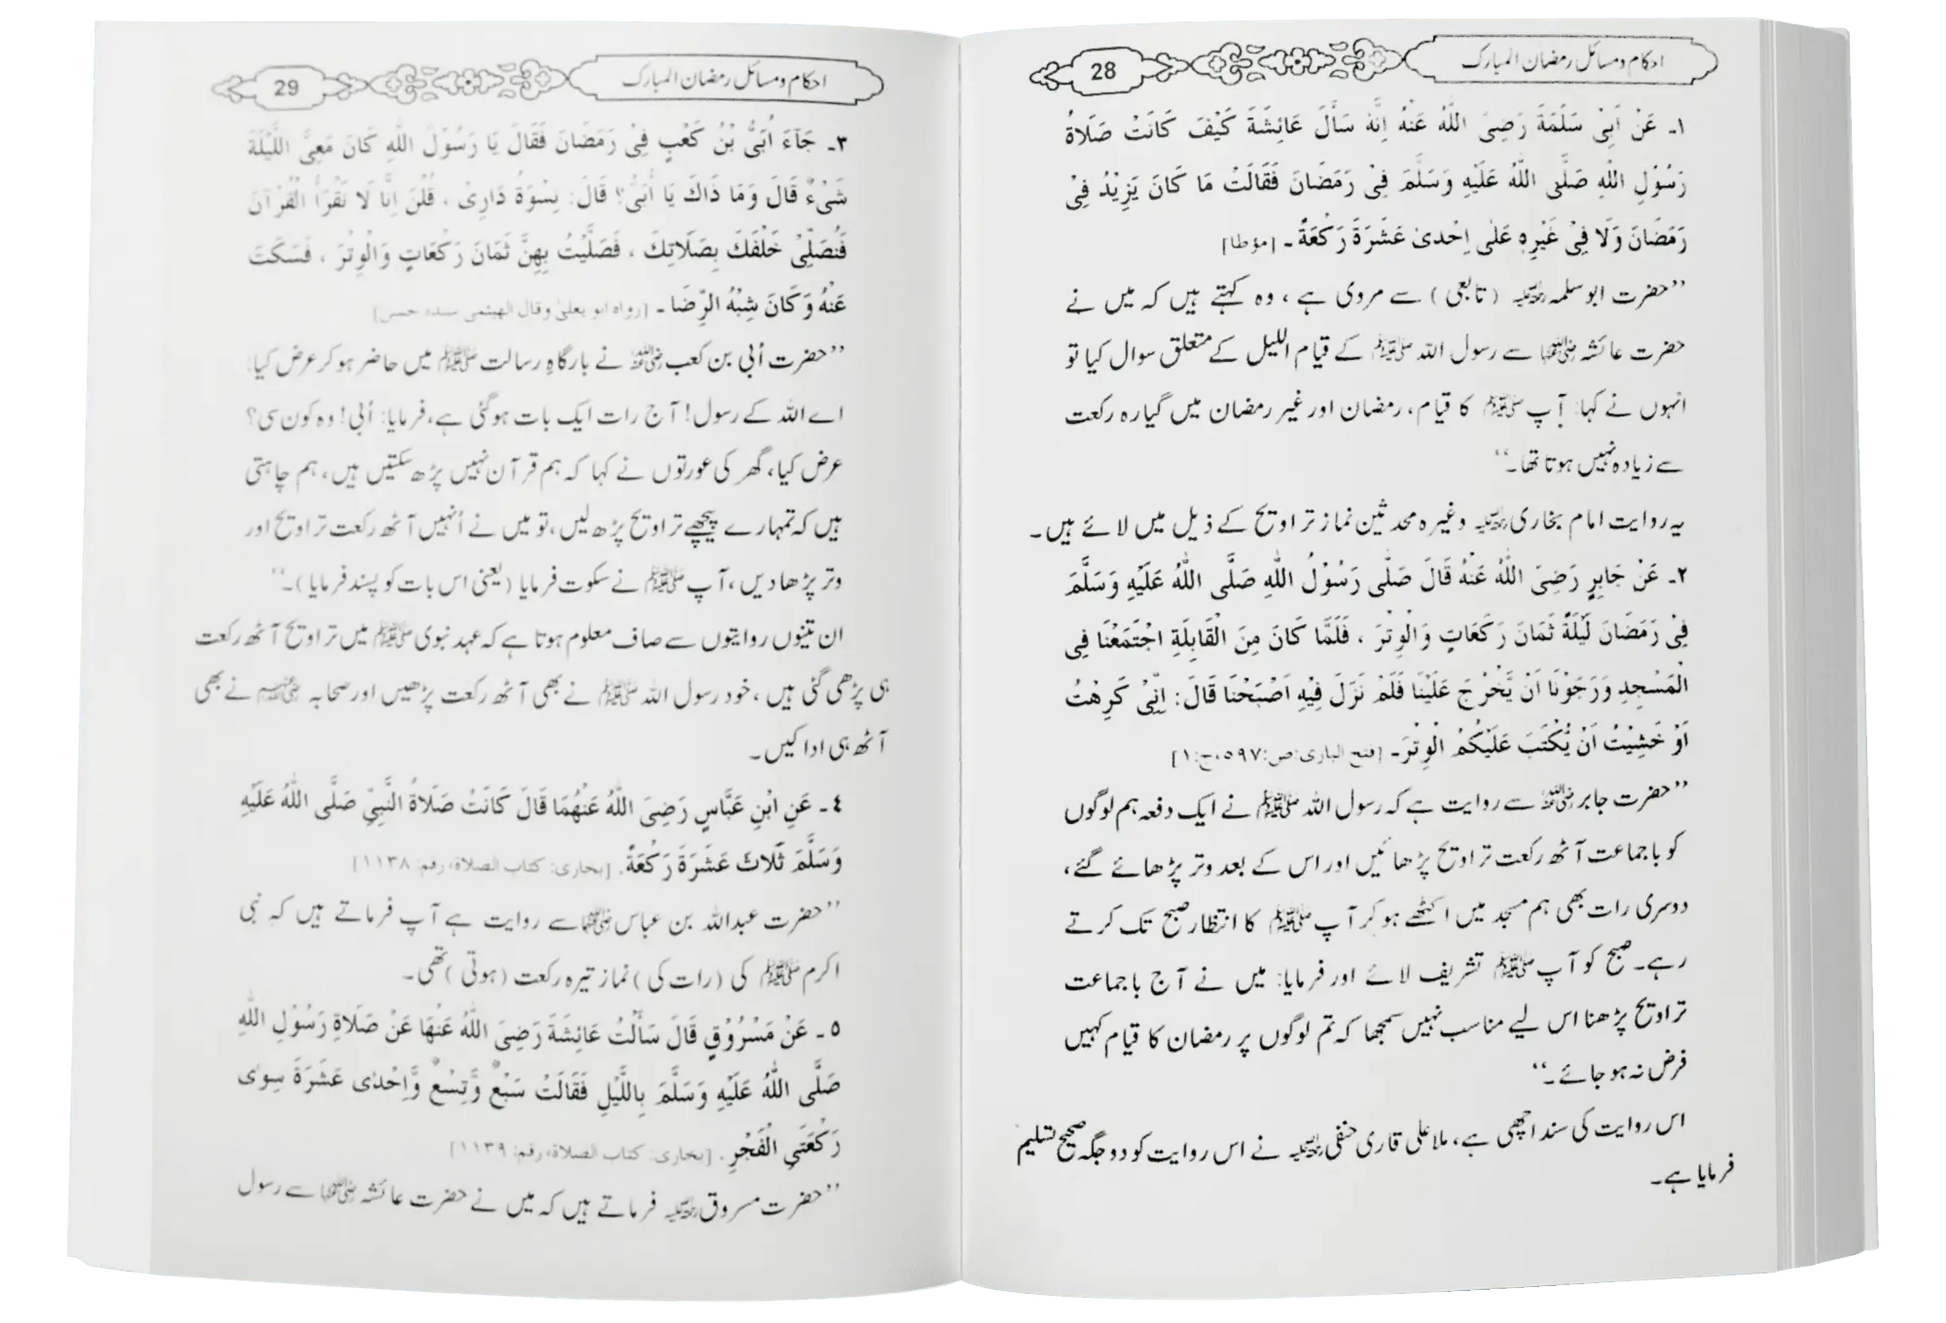 احکام و مسائل رمضان المبارک
28
۱۔ عَنْ اَبِیْ سَلَمَةَ رَضِیَ اللّٰهُ عَنْهُ اِنَّهٗ سَأَلَ عَائِشَةَ كَیْفَ كَانَتْ صَلَاةُ
رَسُوْلِ اللّٰهِ صَلَّی اللّٰهُ عَلَیْهِ وَسَلَّمَ فِیْ رَمَضَانَ فَقَالَتْ مَا كَانَ یَزِیْدُ فِیْ
رَمَضَانَ وَلَا فِیْ غَیْرِهٖ عَلٰی اِحْدیٰ عَشَرَةَ رَكْعَةً۔ [مؤطا]
’’حضرت ابوسلمہ رحمہ اللہ (تابعی) سے مروی ہے، وہ کہتے ہیں کہ میں نے
حضرت عائشہ رضی اللہ عنہا سے رسول اللہ ﷺ کے قیام اللیل کے متعلق سوال کیا تو
انہوں نے کہا: آپ ﷺ کا قیام، رمضان اور غیر رمضان میں گیارہ رکعت
سے زیادہ نہیں ہوتا تھا۔‘‘
یہ روایت امام بخاری رحمہ اللہ وغیرہ محدثین نماز تراویح کے ذیل میں لائے ہیں۔
۲۔ عَنْ جَابِرٍ رَضِیَ اللّٰهُ عَنْهُ قَالَ صَلّٰی رَسُوْلُ اللّٰهِ صَلَّی اللّٰهُ عَلَیْهِ وَسَلَّمَ
فِیْ رَمَضَانَ لَیْلَةً ثَمَانَ رَكَعَاتٍ وَالْوِتْرَ ، فَلَمَّا كَانَ مِنَ الْقَابِلَةِ اجْتَمَعْنَا فِی
الْمَسْجِدِ وَرَجَوْنَا اَنْ یَّخْرُجَ عَلَیْنَا فَلَمْ نَزَلَ فِیْهِ اَصْبَحْنَا قَالَ: اِنِّیْ كَرِهْتُ
اَوْ خَشِیْتُ اَنْ یُّكْتَبَ عَلَیْكُمُ الْوِتْرَ۔ [فتح الباری:ص:۵۹۷،ج:۱]
’’حضرت جابر رضی اللہ عنہ سے روایت ہے کہ رسول اللہ ﷺ نے ایک دفعہ ہم لوگوں
کو باجماعت آٹھ رکعت تراویح پڑھائیں اور اس کے بعد وتر پڑھائے گئے،
دوسری رات بھی ہم مسجد میں اکٹھے ہو کر آپ ﷺ کا انتظار صبح تک کرتے
رہے۔ صبح کو آپ ﷺ تشریف لائے اور فرمایا: میں نے آج باجماعت
تراویح پڑھنا اس لیے مناسب نہیں سمجھا کہ تم لوگوں پر رمضان کا قیام کہیں
فرض نہ ہو جائے۔‘‘
اس روایت کی سند اچھی ہے، ملا علی قاری حنفی رحمہ اللہ نے اس روایت کو دو جگہ صحیح تسلیم
فرمایا ہے۔
احکام و مسائل رمضان المبارک
29
۳۔ جَآءَ اُبَیُّ بْنُ كَعْبٍ فِیْ رَمَضَانَ فَقَالَ یَا رَسُوْلَ اللّٰهِ كَانَ مَعِیَ اللَّیْلَةَ
شَیْءٌ قَالَ وَمَا ذَاكَ یَا اُبَیُّ؟ قَالَ: نِسْوَةُ دَارِیْ ، قُلْنَ اِنَّا لَا نَقْرَأُ الْقُرْآنَ
فَنُصَلِّیْ خَلْفَكَ بِصَلَاتِكَ ، فَصَلَّیْتُ بِهِنَّ ثَمَانَ رَكْعَاتٍ وَالْوِتْرَ ، فَسَكَتَ
عَنْهُ وَكَانَ شِبْهُ الرِّضَا۔ [رواه ابو یعلیٰ وقال الهیثمی سنده حسن]
’’حضرت اُبی بن کعب رضی اللہ عنہ نے بارگاہِ رسالت ﷺ میں حاضر ہو کر عرض کیا:
اے اللہ کے رسول! آج رات ایک بات ہو گئی ہے، فرمایا: اُبی! وہ کون سی؟
عرض کیا، گھر کی عورتوں نے کہا کہ ہم قرآن نہیں پڑھ سکتیں ہیں، ہم چاہتی
ہیں کہ تمہارے پیچھے تراویح پڑھ لیں، تو میں نے اُنہیں آٹھ رکعت تراویح اور
وتر پڑھا دیں، آپ ﷺ نے سکوت فرمایا (یعنی اس بات کو پسند فرمایا)۔‘‘
ان تینوں روایتوں سے صاف معلوم ہوتا ہے کہ عہد نبوی ﷺ میں تراویح آٹھ رکعت
ہی پڑھی گئی ہیں، خود رسول اللہ ﷺ نے بھی آٹھ رکعت پڑھیں اور صحابہ رضی اللہ عنہم نے بھی
آٹھ ہی ادا کیں۔
٤۔ عَنِ ابْنِ عَبَّاسٍ رَضِیَ اللّٰهُ عَنْهُمَا قَالَ كَانَتْ صَلَاةُ النَّبِیِّ صَلَّی اللّٰهُ عَلَیْهِ
وَسَلَّمَ ثَلَاثَ عَشَرَةَ رَكْعَةً. [بخاری: كتاب الصلاة، رقم: ۱۱۳۸]
’’حضرت عبداللہ بن عباس رضی اللہ عنہما سے روایت ہے آپ فرماتے ہیں کہ نبی
اکرم ﷺ کی (رات کی) نماز تیرہ رکعت (ہوتی) تھی۔
٥۔ عَنْ مَسْرُوْقٍ قَالَ سَأَلْتُ عَائِشَةَ رَضِیَ اللّٰهُ عَنْهَا عَنْ صَلَاةِ رَسُوْلِ اللّٰهِ
صَلَّی اللّٰهُ عَلَیْهِ وَسَلَّمَ بِاللَّیْلِ فَقَالَتْ سَبْعٌ وَّتِسْعٌ وَّاِحْدٰی عَشَرَةَ سِوٰی
رَكْعَتَیِ الْفَجْرِ. [بخاری: كتاب الصلاة، رقم: ۱۱۳۹]
’’حضرت مسروق رحمہ اللہ فرماتے ہیں کہ میں نے حضرت عائشہ رضی اللہ عنہا سے رسول